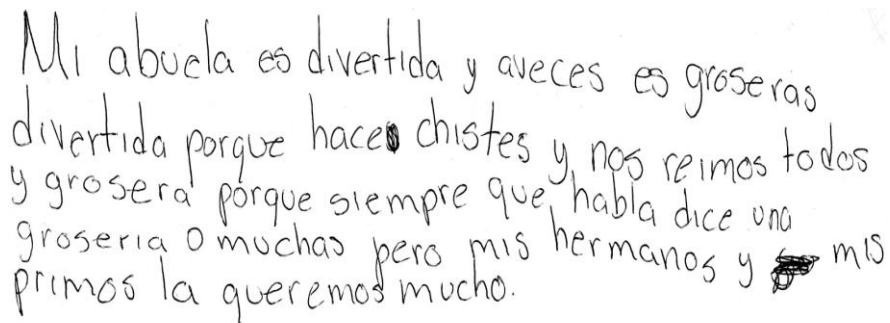 Mi abuela es divertida y aveces es groseras
divertida porque hace chistes y nos reimos todos
y grosera porque siempre que habla dice una
groseria o muchas pero mis hermanos y mis
primos la queremos mucho.